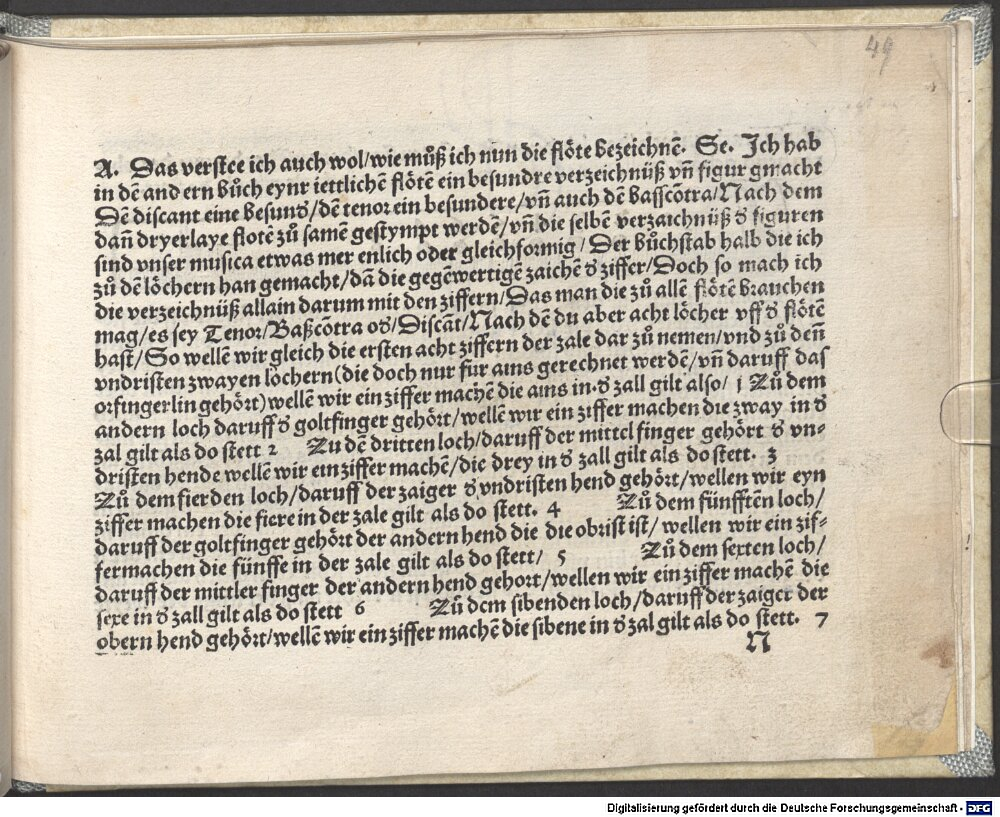 49
A. Das verstee ich auch wol/wie můß ich nun die flöte bezeichnē. Se. Ich hab
in dē and ern bůch eynr iettlichē flötē ein besundre verzeichnüß vñ figur gmacht
Dē discant eine besunđ/dē tenor ein besundere/vñ auch dē basscōtra/Nach dem
dañ dryerlaye flotē zů samē gestympt werdē/vñ die selbē verzaichnüß đ figuren
sind vnser musica etwas mer enlich oder gleichformig/Der bůchstab halb die ich
zů dē löchern han gemacht/dā die gegēwertigē zaichē đ ziffer/Doch so mach ich
die verzeichnüß allain darum mit den ziffern/Das man die zů allē flötē brauchen
mag/es sey Tenor/Baßcōtra ođ/Discāt/Nach dē du aber acht löcher vff đ flötē
hast/So wellē wir gleich die ersten acht ziffern der zale dar zů nemen/vnd zů deñ
vndristen zwayen löchern(die doch nur für ains gerechnet werdē/vñ daruff das
orfingerlin gehört)wellē wir ein ziffer machē die ains in.đ zall gilt also/ 1 Zů dem
andern loch daruff đ goltfinger gehört/wellē wir ein ziffer machen die zway in đ
zal gilt als do stett 2 Zu dē dritten loch/daruff der mittel finger gehört đ vn⸗
dristen hende wellē wir ein ziffer machē/die drey in đ zall gilt als do stett. 3
Zů dem fierden loch/daruff der zaiger đ vndristen hend gehört/wellen wir eyn
ziffer machen die fiere in der zale gilt als do stett. 4 Zů dem fünfftēn loch/
daruff der goltfinger gehört der andern hend die die obrist ist/wellen wir ein zif⸗
fermachen die fünffe in der zale gilt als do stett/ 5 Zů dem sexten loch/
daruff der mittler finger der andern hend gehort/wellen wir ein ziffer machē die
sexe in đ zall gilt als do stett 6 Zů dem sibenden loch/daruff der zaiger der
obern hend gehört/wellē wir ein ziffer machē die sibene in đ zal gilt als do stett. 7
N
Digitalisierung gefördert durch die Deutsche Forschungsgemeinschaft - DFG